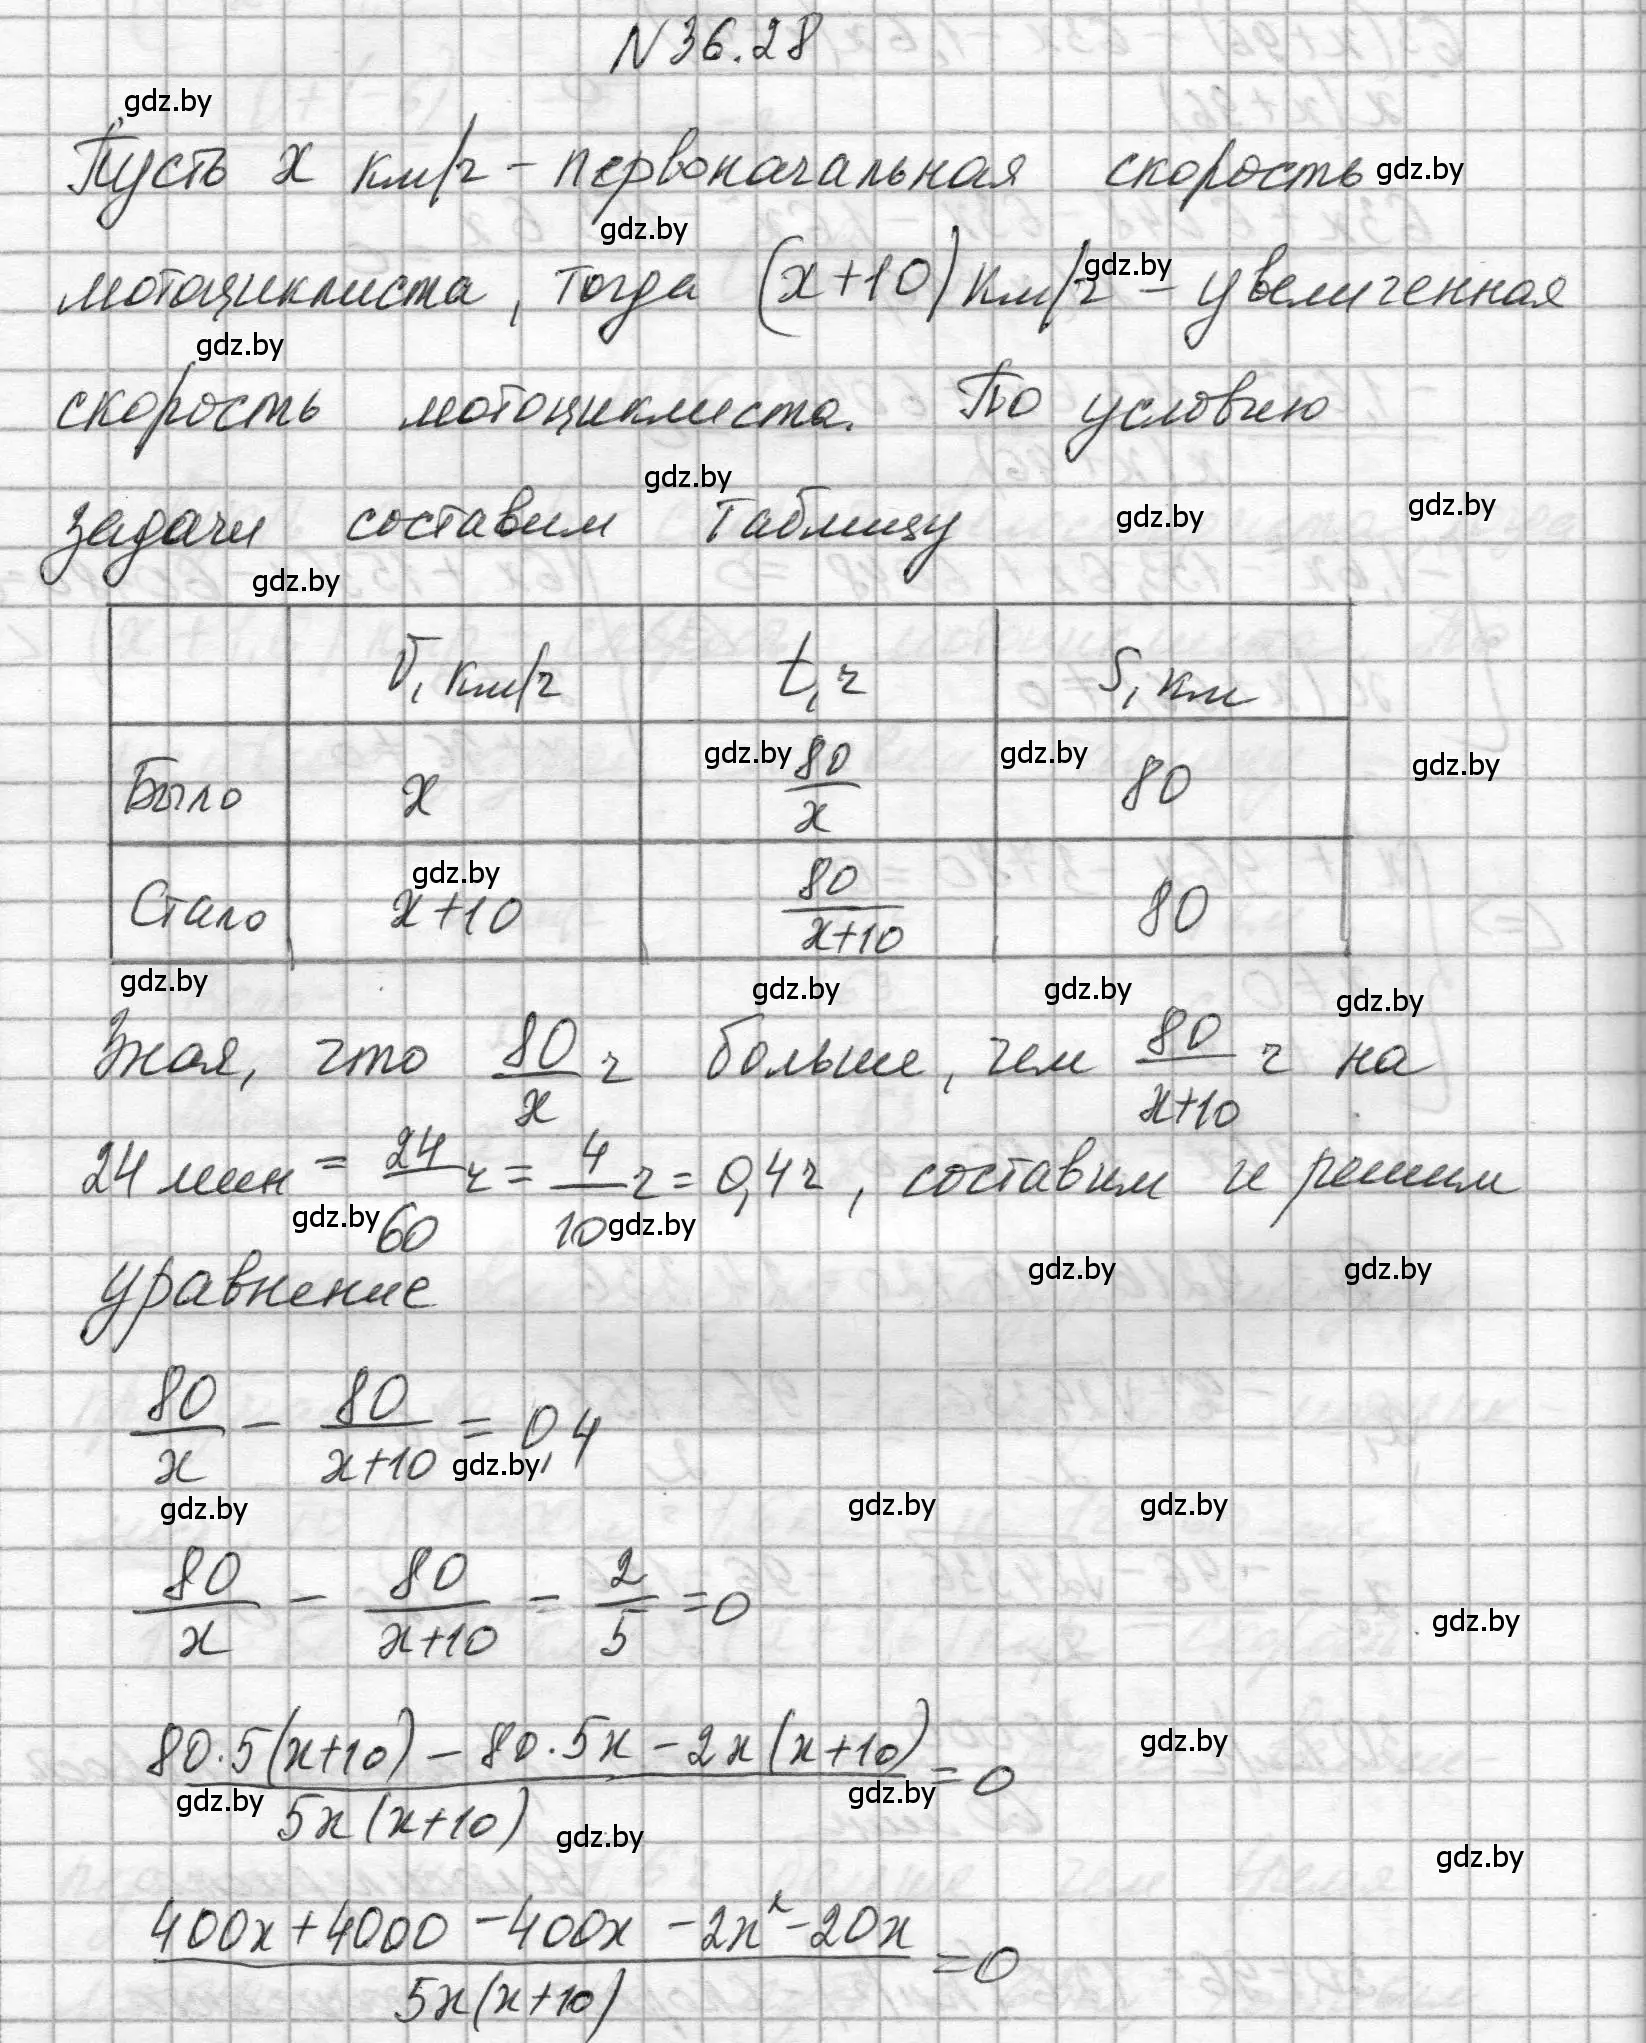 N 36.28
gdz.by
Пусть x км/ч - первоначальная скорость gdz.by
gdz.by
мотоциклиста, тогда (x+10) км/ч - увеличенная
gdz.by
gdz.by
скорость мотоциклиста. По условию
gdz.by gdz.by gdz.by
задачи составим таблицу
gdz.by
v, км/ч t, ч S, км
Было x gdz.by 80/x gdz.by 80 gdz.by
gdz.by
Стало x+10 80/(x+10) 80
gdz.by gdz.by gdz.by gdz.by
Зная, что 80/x ч больше, чем 80/(x+10) ч на
24 мин = 24/60 ч = 4/10 ч = 0,4 ч, составим и решим
gdz.by gdz.by
уравнение gdz.by gdz.by
80/x - 80/(x+10) = 0,4
gdz.by
gdz.by gdz.by gdz.by
80/x - 80/(x+10) - 2/5 = 0
gdz.by
(80·5(x+10) - 80·5x - 2x(x+10))/(5x(x+10)) = 0
gdz.by
gdz.by gdz.by
gdz.by
gdz.by
(400x+4000-400x-2x²-20x)/(5x(x+10)) = 0